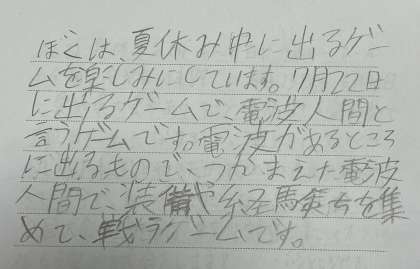 ぼくは、夏休み中に出るゲー
ムを楽しみにしています。7月22日
に出るゲームで、電波人間と
言うゲームです。電波があるところ
に出るもので、つかまえた電波
人間で、装備や経馬矣ちを集
めて、戦うゲームです。